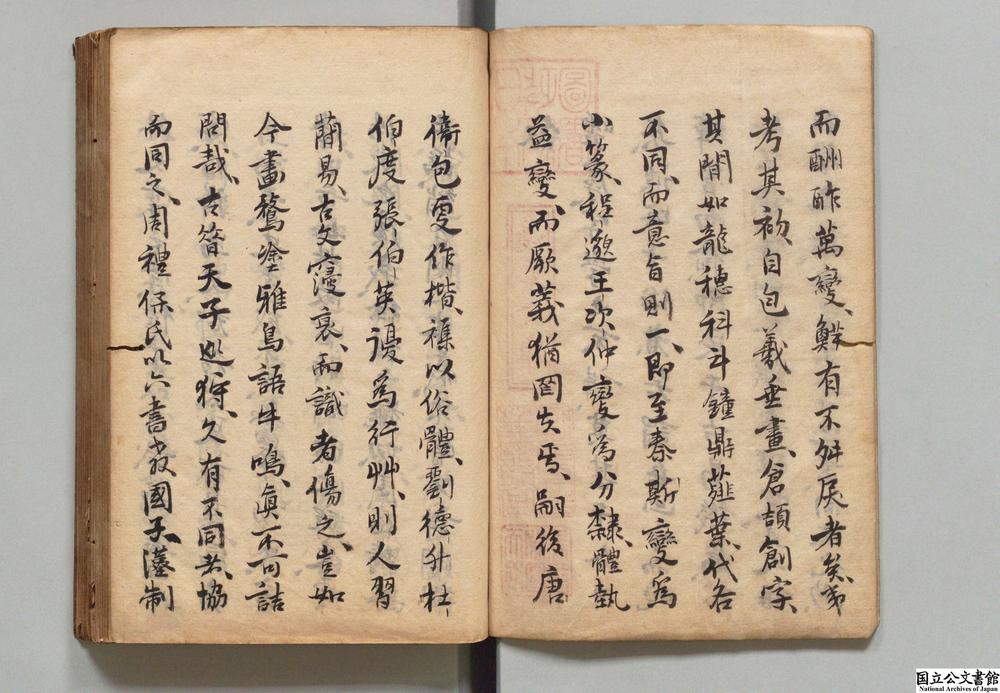 而酬酢萬變、鮮有不舛戾者矣、第
考其初、自包羲垂畫、倉頡創字、
其間如龍穗科斗鐘鼎薤葉、代各
不同、而意旨則一、即至秦斯變為
小篆、程邈王次仲變為分隸、體埶
益變、而厥義猶罔失焉、嗣後唐
衛包更作楷、襍以俗體、劉德升杜
伯度張伯英謾為行艸、則人習
蕑易、古文寖衰、而識者傷之、豈如
今畫鶩塗雅鳥語牛鳴、眞不可詰
問哉、古昝天子巡狩、久有不同者、協
而同之、周禮保氏以六書教國子、漢制
国立公文書館
National Archives of Japan